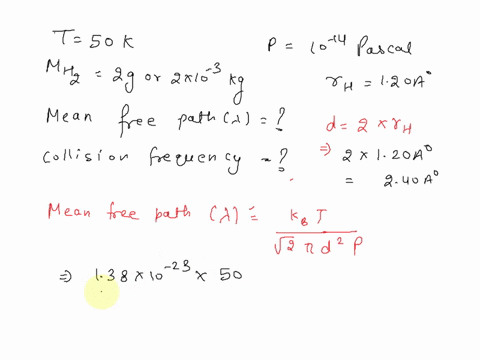 T = 50 K
P = 10⁻¹⁴ Pascal
M_H₂ = 2g or 2×10⁻³ kg
r_H = 1.20A°
Mean free path (λ) = ?
d = 2 × r_H
Collision frequency = ?
⇒ 2 × 1.20A°
= 2.40A°
Mean free path (λ) = k_B T / √2 π d² P
⇒ 1.38 × 10⁻²³ × 50